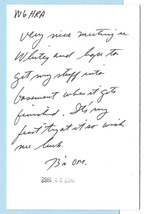 W6HRA
very nice meeting u
Whitey and hope to
get my stuff into
basement when it gets
finish'd. It's my
first try at it so wish
me luck.
73's OM.